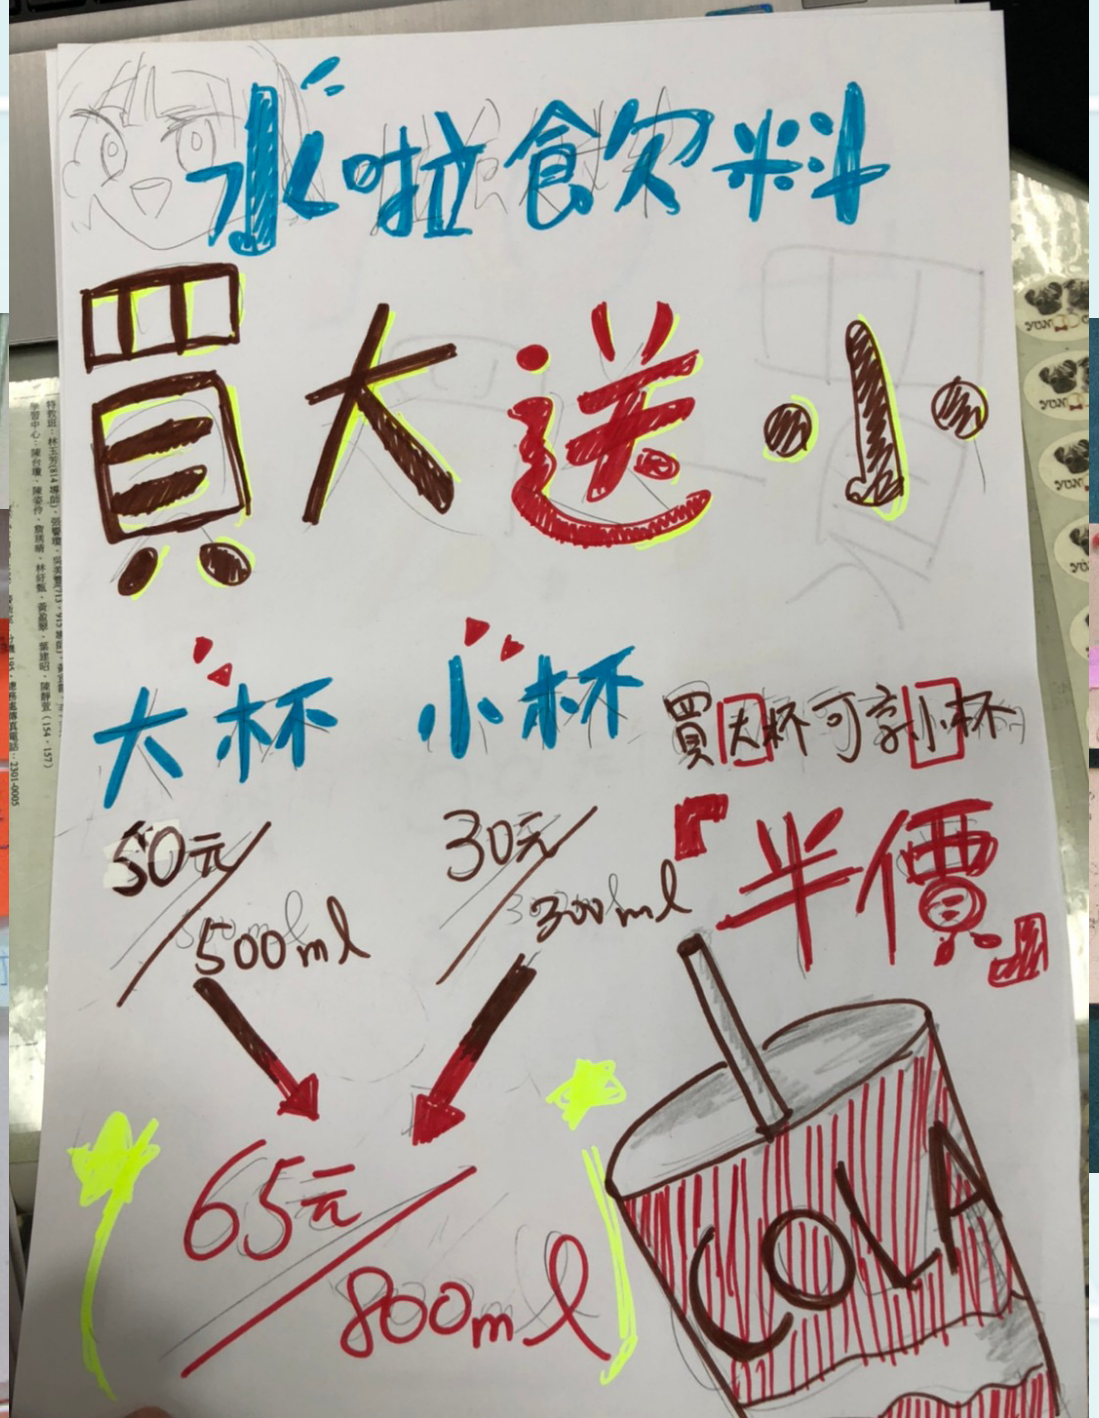 水啦飲料
買大送小
大杯 小杯 買大杯可享小杯
50元/500ml 30元/300ml 『半價』
65元/800ml
COLA